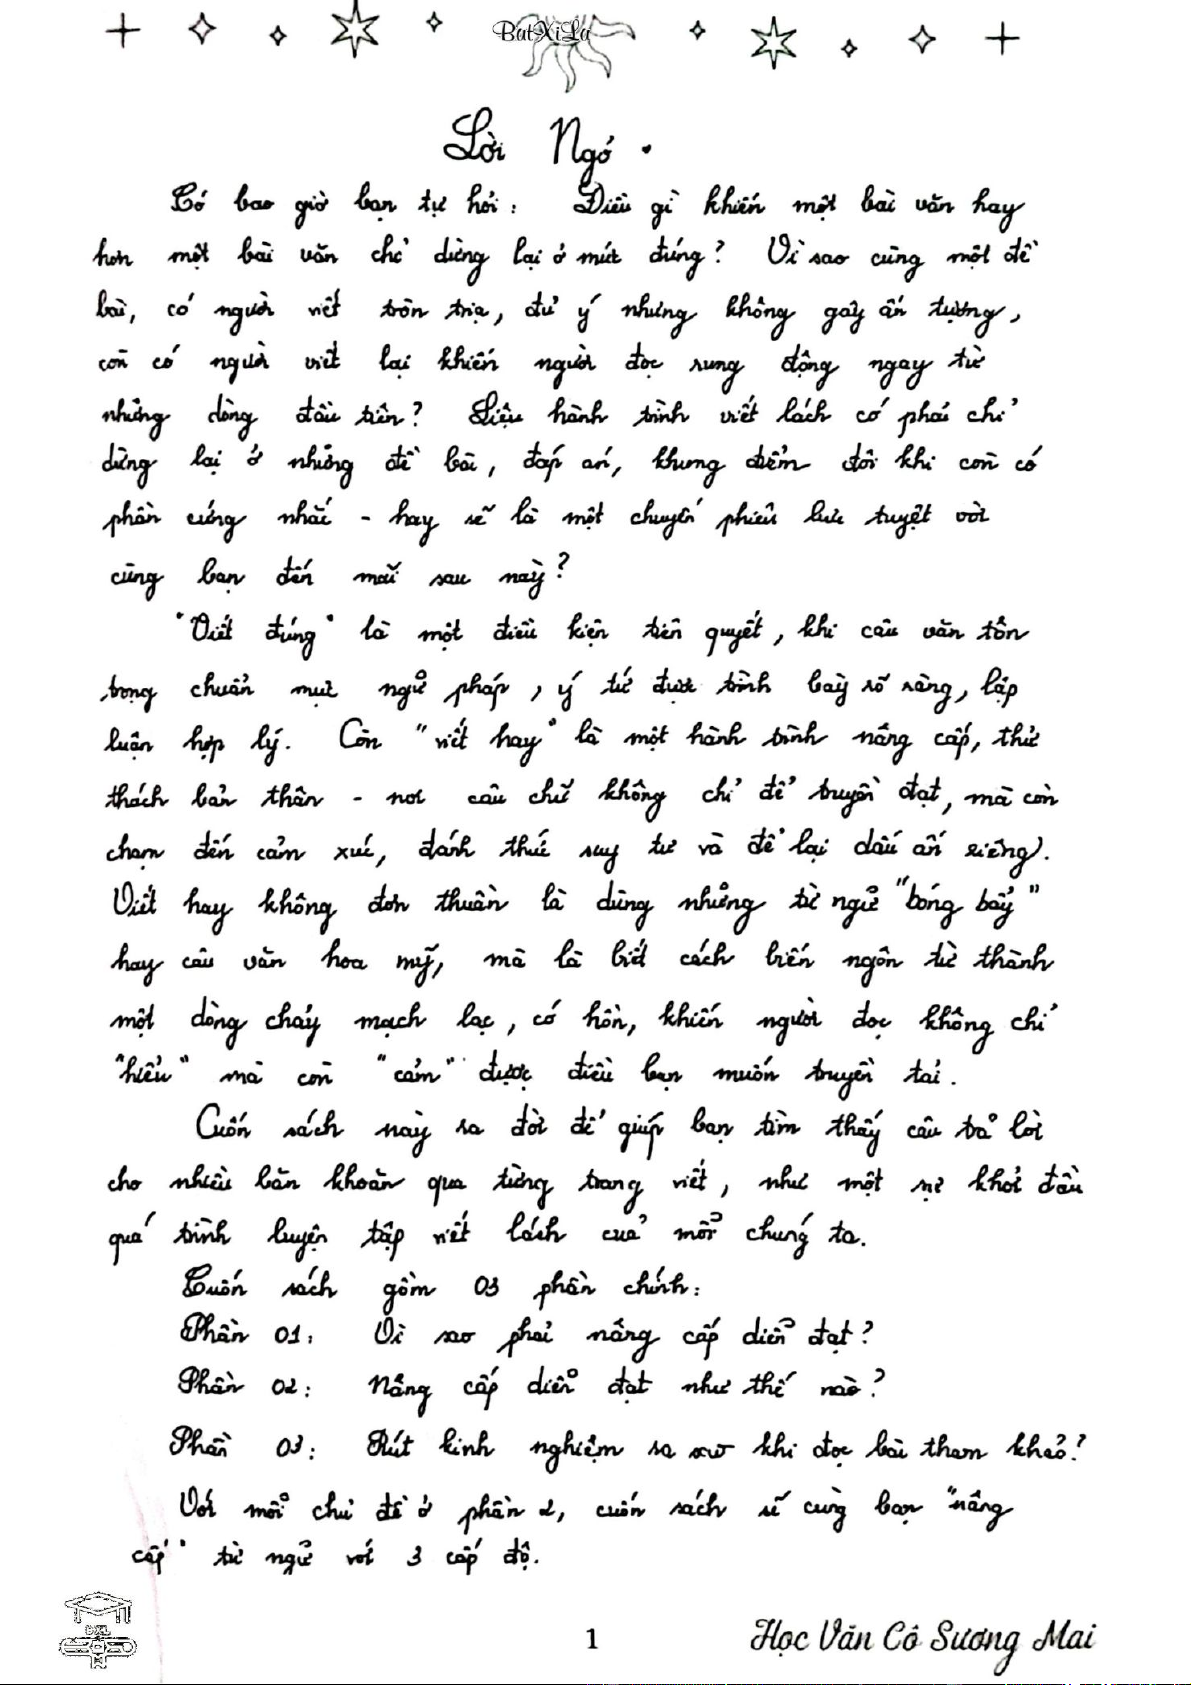 BatXiLa
Lời Ngỏ.
Có bao giờ bạn tự hỏi: Điều gì khiến một bài văn hay
hơn một bài văn chỉ dừng lại ở mức đúng? Vì sao cùng một đề
bài, có người viết tròn trịa, đủ ý nhưng không gây ấn tượng,
còn có người viết lại khiến người đọc rung động ngay từ
những dòng đầu tiên? Liệu hành trình viết lách có phải chỉ
dừng lại ở những đề bài, đáp án, khung điểm đôi khi còn có
phần cứng nhắc - hay sẽ là một chuyến phiêu lưu tuyệt vời
cùng bạn đến mãi sau này?
"Viết đúng" là một điều kiện tiên quyết, khi câu văn tôn
trọng chuẩn mực ngữ pháp, ý tứ được trình bày rõ ràng, lập
luận hợp lý. Còn "viết hay" là một hành trình nâng cấp, thử
thách bản thân - nơi câu chữ không chỉ để truyền đạt, mà còn
chạm đến cảm xúc, đánh thức suy tư và để lại dấu ấn riêng.
Viết hay không đơn thuần là dùng những từ ngữ "bóng bẩy"
hay câu văn hoa mỹ, mà là biết cách biến ngôn từ thành
một dòng chảy mạch lạc, có hồn, khiến người đọc không chỉ
"hiểu" mà còn "cảm" được điều bạn muốn truyền tải.
Cuốn sách này ra đời để giúp bạn tìm thấy câu trả lời
cho nhiều băn khoăn qua từng trang viết, như một sự khởi đầu
quá trình luyện tập viết lách của mỗi chúng ta.
Cuốn sách gồm 03 phần chính:
Phần 01: Vì sao phải nâng cấp diễn đạt?
Phần 02: Nâng cấp diễn đạt như thế nào?
Phần 03: Rút kinh nghiệm ra sao khi đọc bài tham khảo?
Với mỗi chủ đề ở phần 2, cuốn sách sẽ cùng bạn "nâng
cấp" từ ngữ với 3 cấp độ.
1
Học Văn Cô Sương Mai